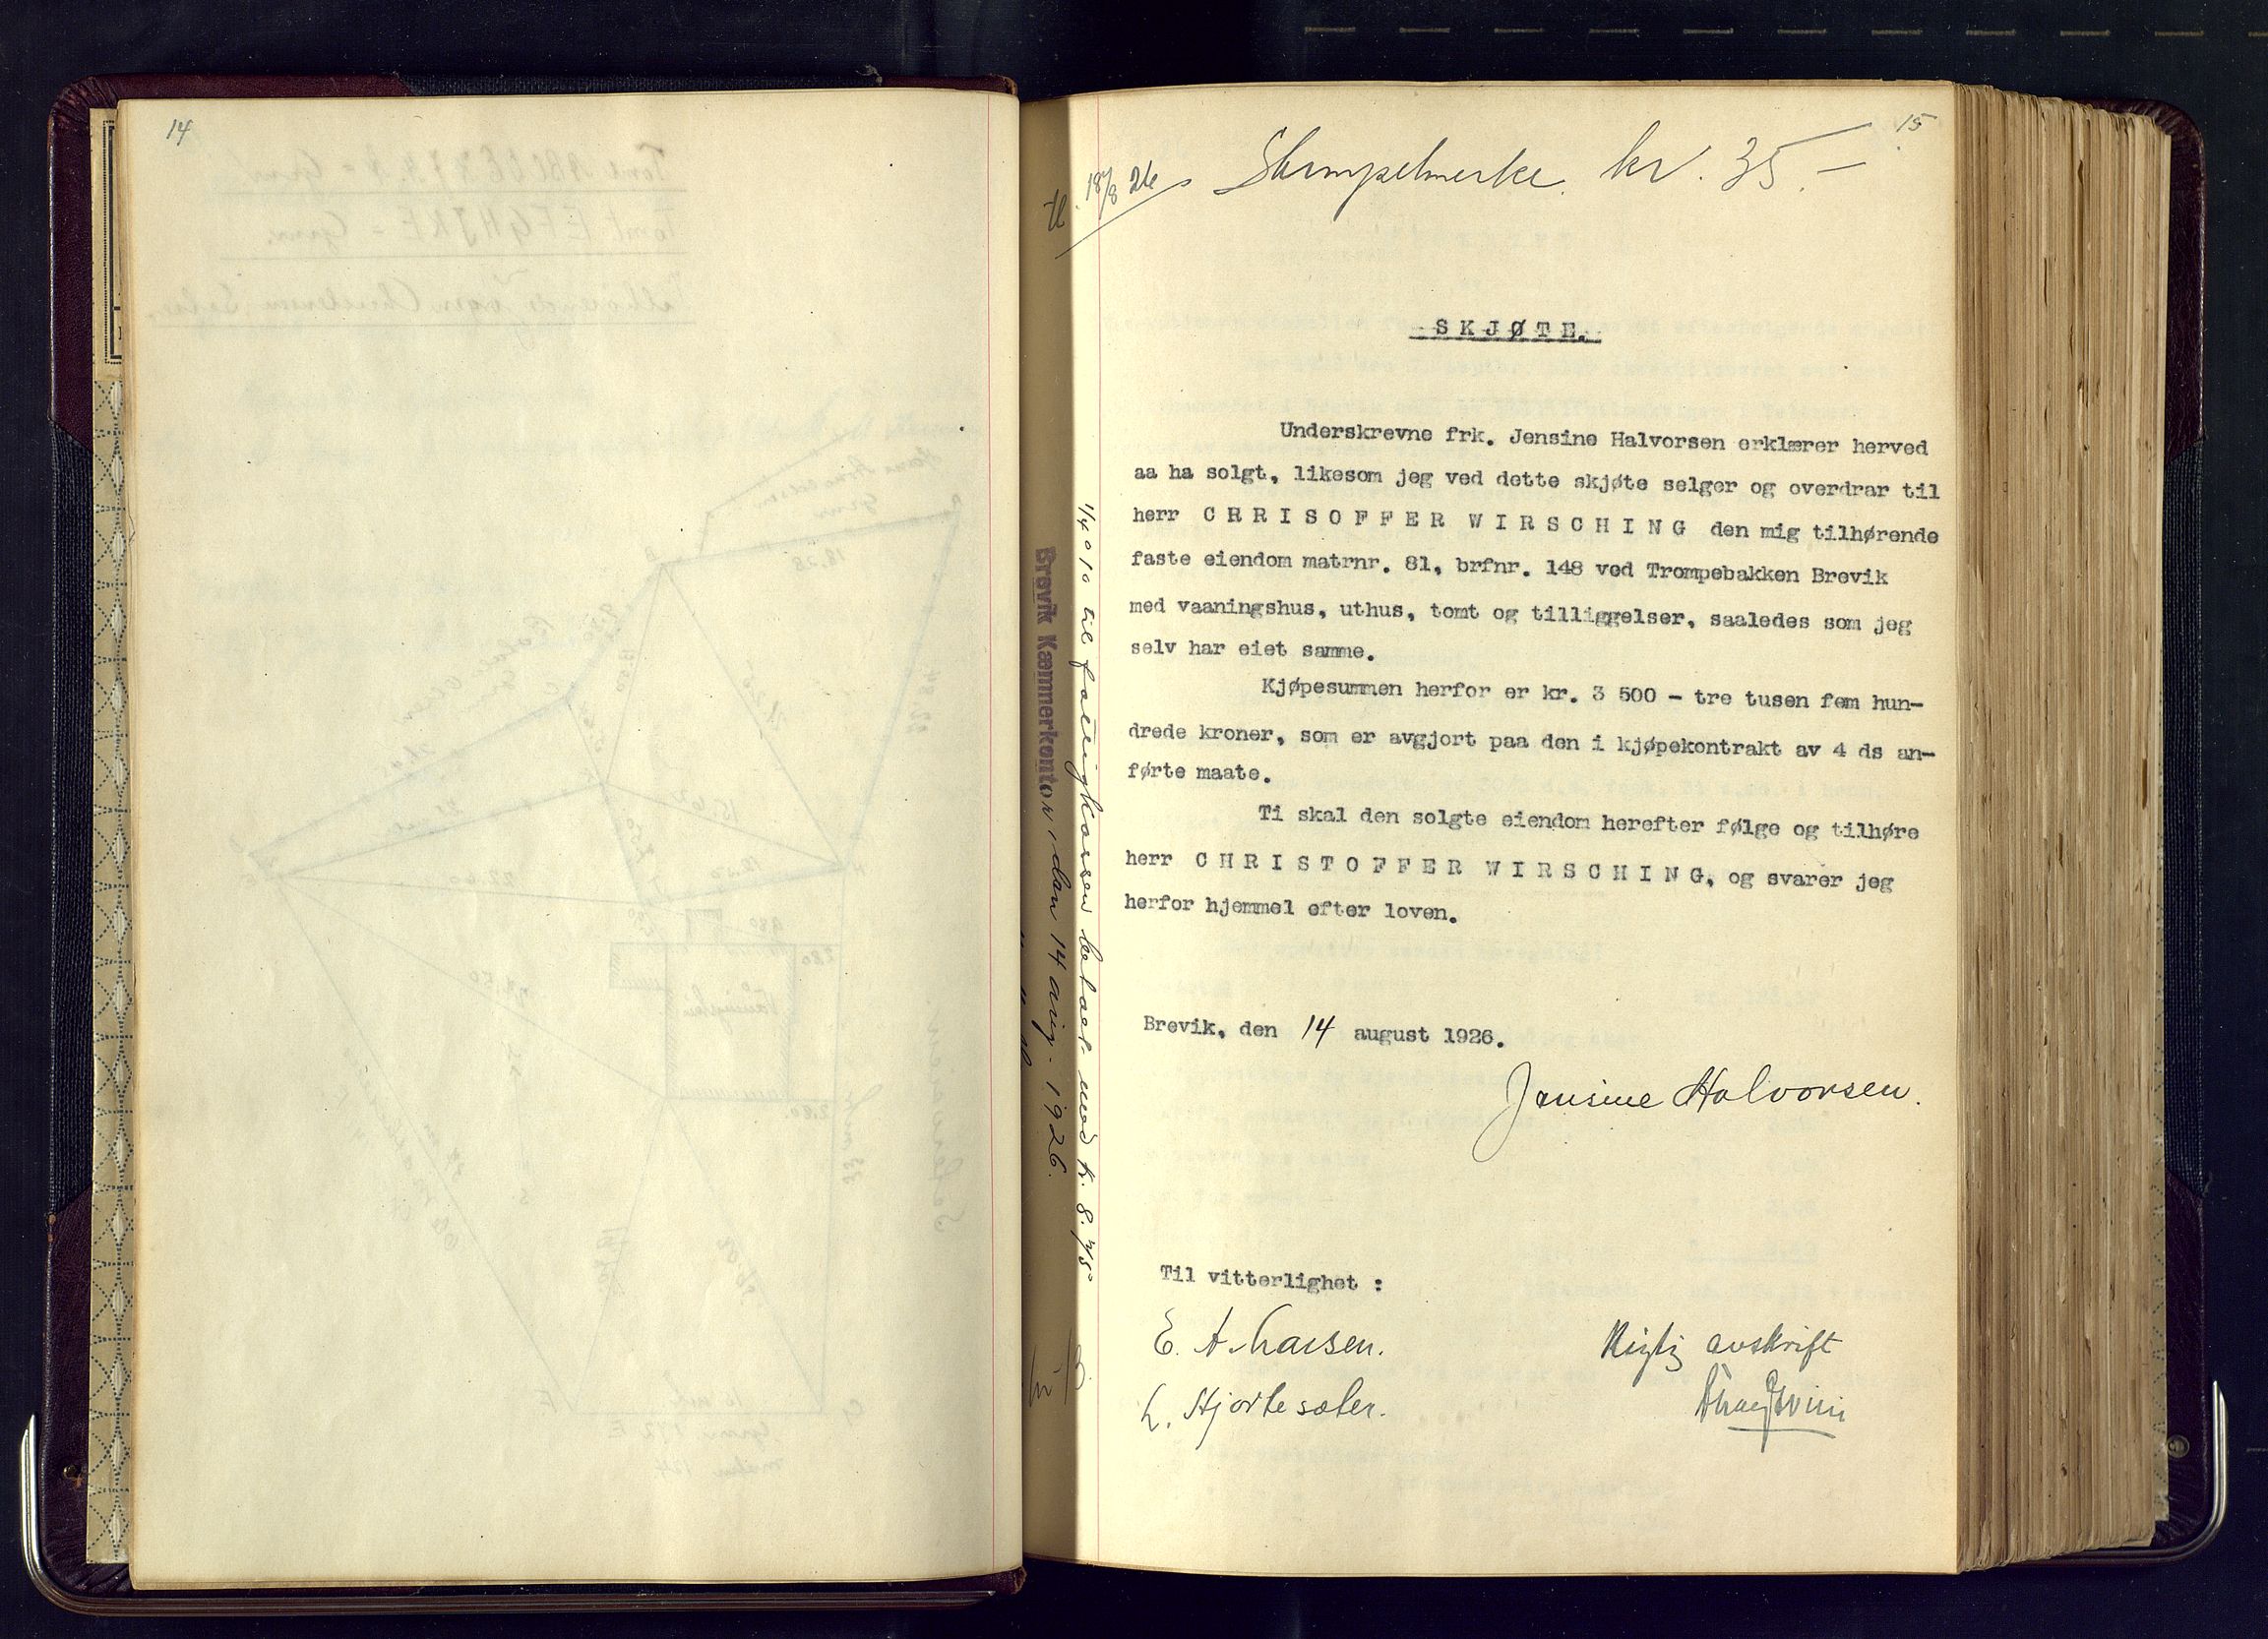 14
15
18/8 26
Stempelmerke kr. 35.–
SKJØTE.
Underskrevne frk. Jensine Halvorsen erklærer herved
aa ha solgt, likesom jeg ved dette skjøte selger og overdrar til
herr CRRISOFFER WIRSCHING den mig tilhørende
faste eiendom matrnr. 81, brfnr. 148 ved Trompebakken Brevik
med vaaningshus, uthus, tomt og tilliggelser, saaledes som jeg
selv har eiet samme.
Kjøpesummen herfor er kr. 3 500 - tre tusen fem hun-
drede kroner, som er avgjort paa den i kjøpekontrakt av 4 ds an-
førte maate.
Ti skal den solgte eiendom herefter følge og tilhøre
herr CHRISTOFFER WIRSCHING, og svarer jeg
herfor hjemmel efter loven.
Brevik, den 14 august 1926.
Jensine Halvorsen.
Til vitterlighet :
E. A. Larsen.
L. Hjortesæter.
Rigtig avskrift
1/4 o/o til fattigkassen betalt med kr. 8.75
Brevik Kæmnerkontor, den 14 aug. 1926.